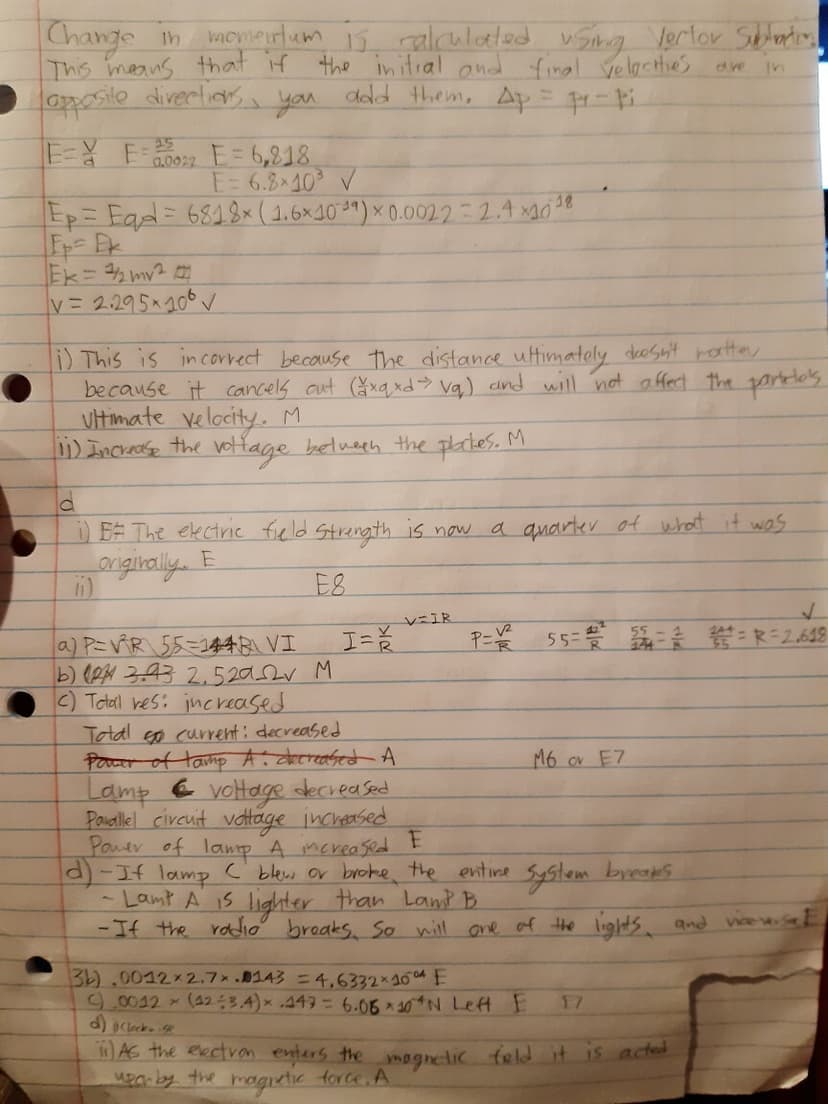 Change in momentum is calculated using Vector Subtraction.
This means that if the initial and final velocities are in
opposite directions, you add them. Δp = pf - pi
E=V/d E=15/0.0022 E=6,818
E=6.8×10³ ✓
Ep = Eqd = 6818×(1.6×10⁻¹⁹)×0.0022 = 2.4×10⁻¹⁸
Ep= Ek
Ek= 1/2mv²
V= 2.295×10⁶ ✓
i) This is incorrect because the distance ultimately doesn't matter
because it cancels out (V/d×q×d→Vq) and will not affect the particles
Ultimate velocity. M
ii) Increase the voltage between the plates. M
d
i) E= The electric field strength is now a quarter of what it was
originally. E
ii) E8
V=IR
a) P=V²R 55=144R VI I=V/R P=V²/R 55=12²/R 55/144=1/R 144/55=R=2.618 ✓
b) 3.93 2.529Ωv M
c) Total res: increased
Total current: decreased
Power of lamp A: decreased A M6 or E7
Lamp C voltage decreased
Parallel circuit voltage increased
Power of lamp A increased E
d) -If lamp C blew or broke, the entire system breaks
- Lamp A is lighter than Lamp B
-If the radio breaks, so will one of the lights, and vice versa E
3b) .0012×2.7×.0143 = 4.6332×10⁻⁰⁴ E
c) .0012 × (12÷3.4)× .143 = 6.05×10⁻⁴N Left E
d)
ii) AS the electron enters the magnetic field it is acted
upon by the magnetic force. A